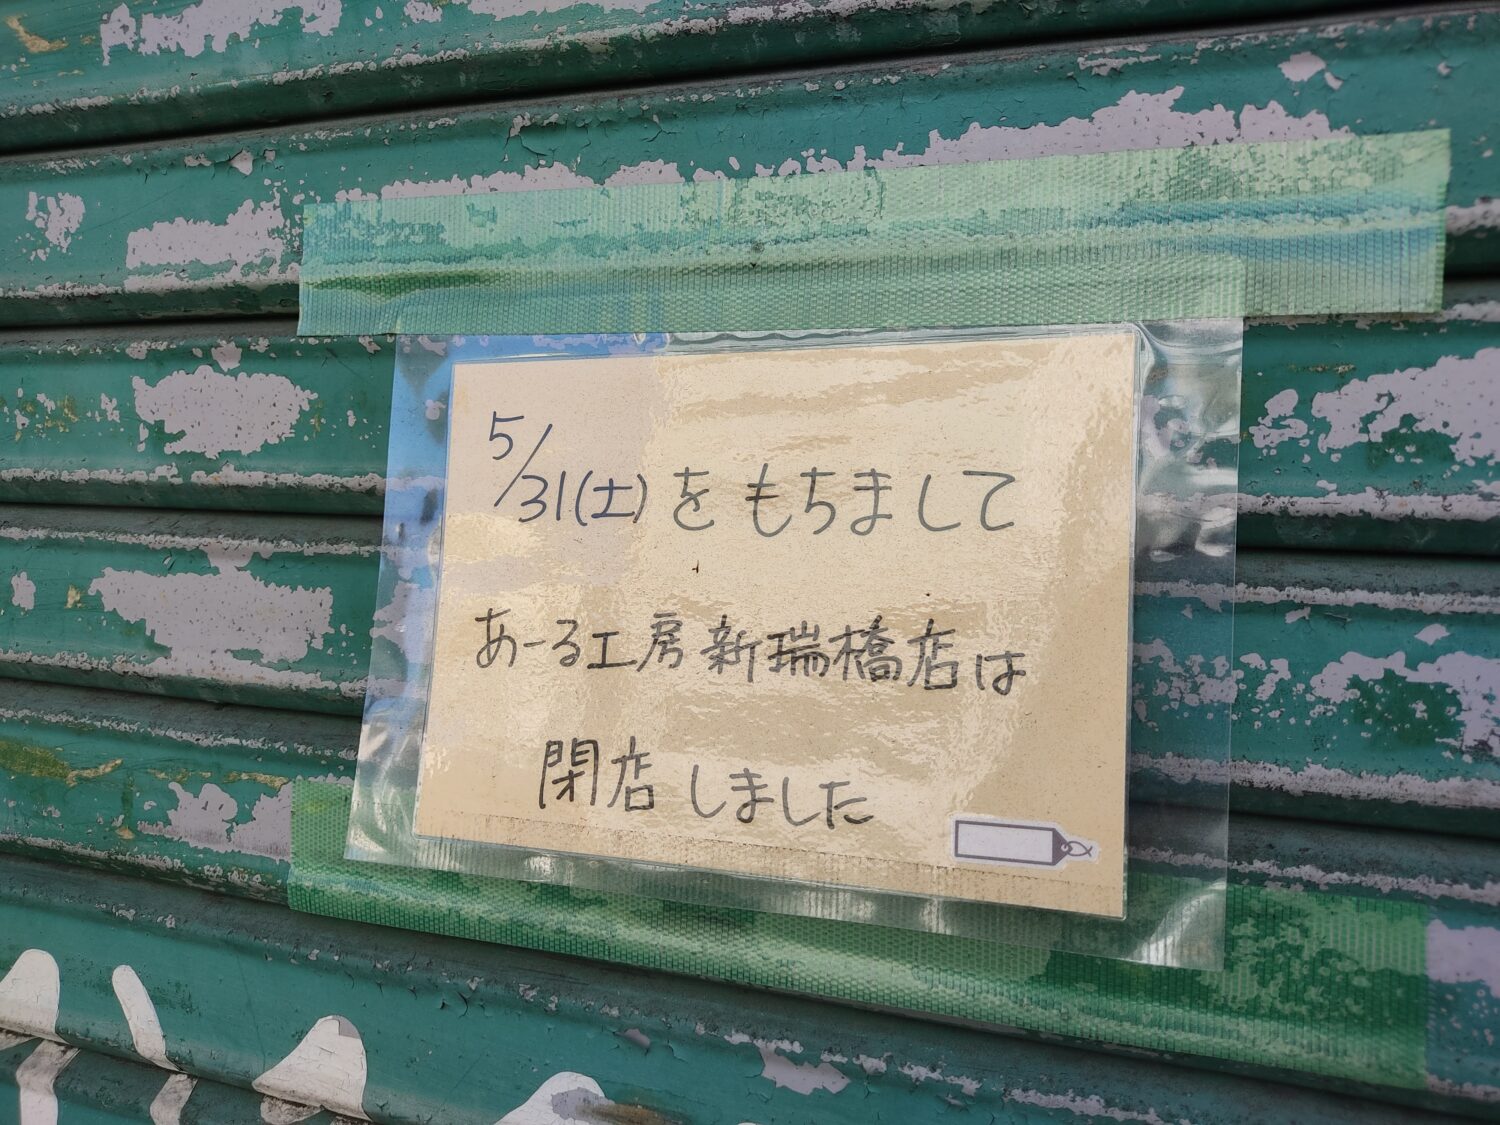 5/31(土)をもちまして
あーる工房新瑞橋店は
閉店しました